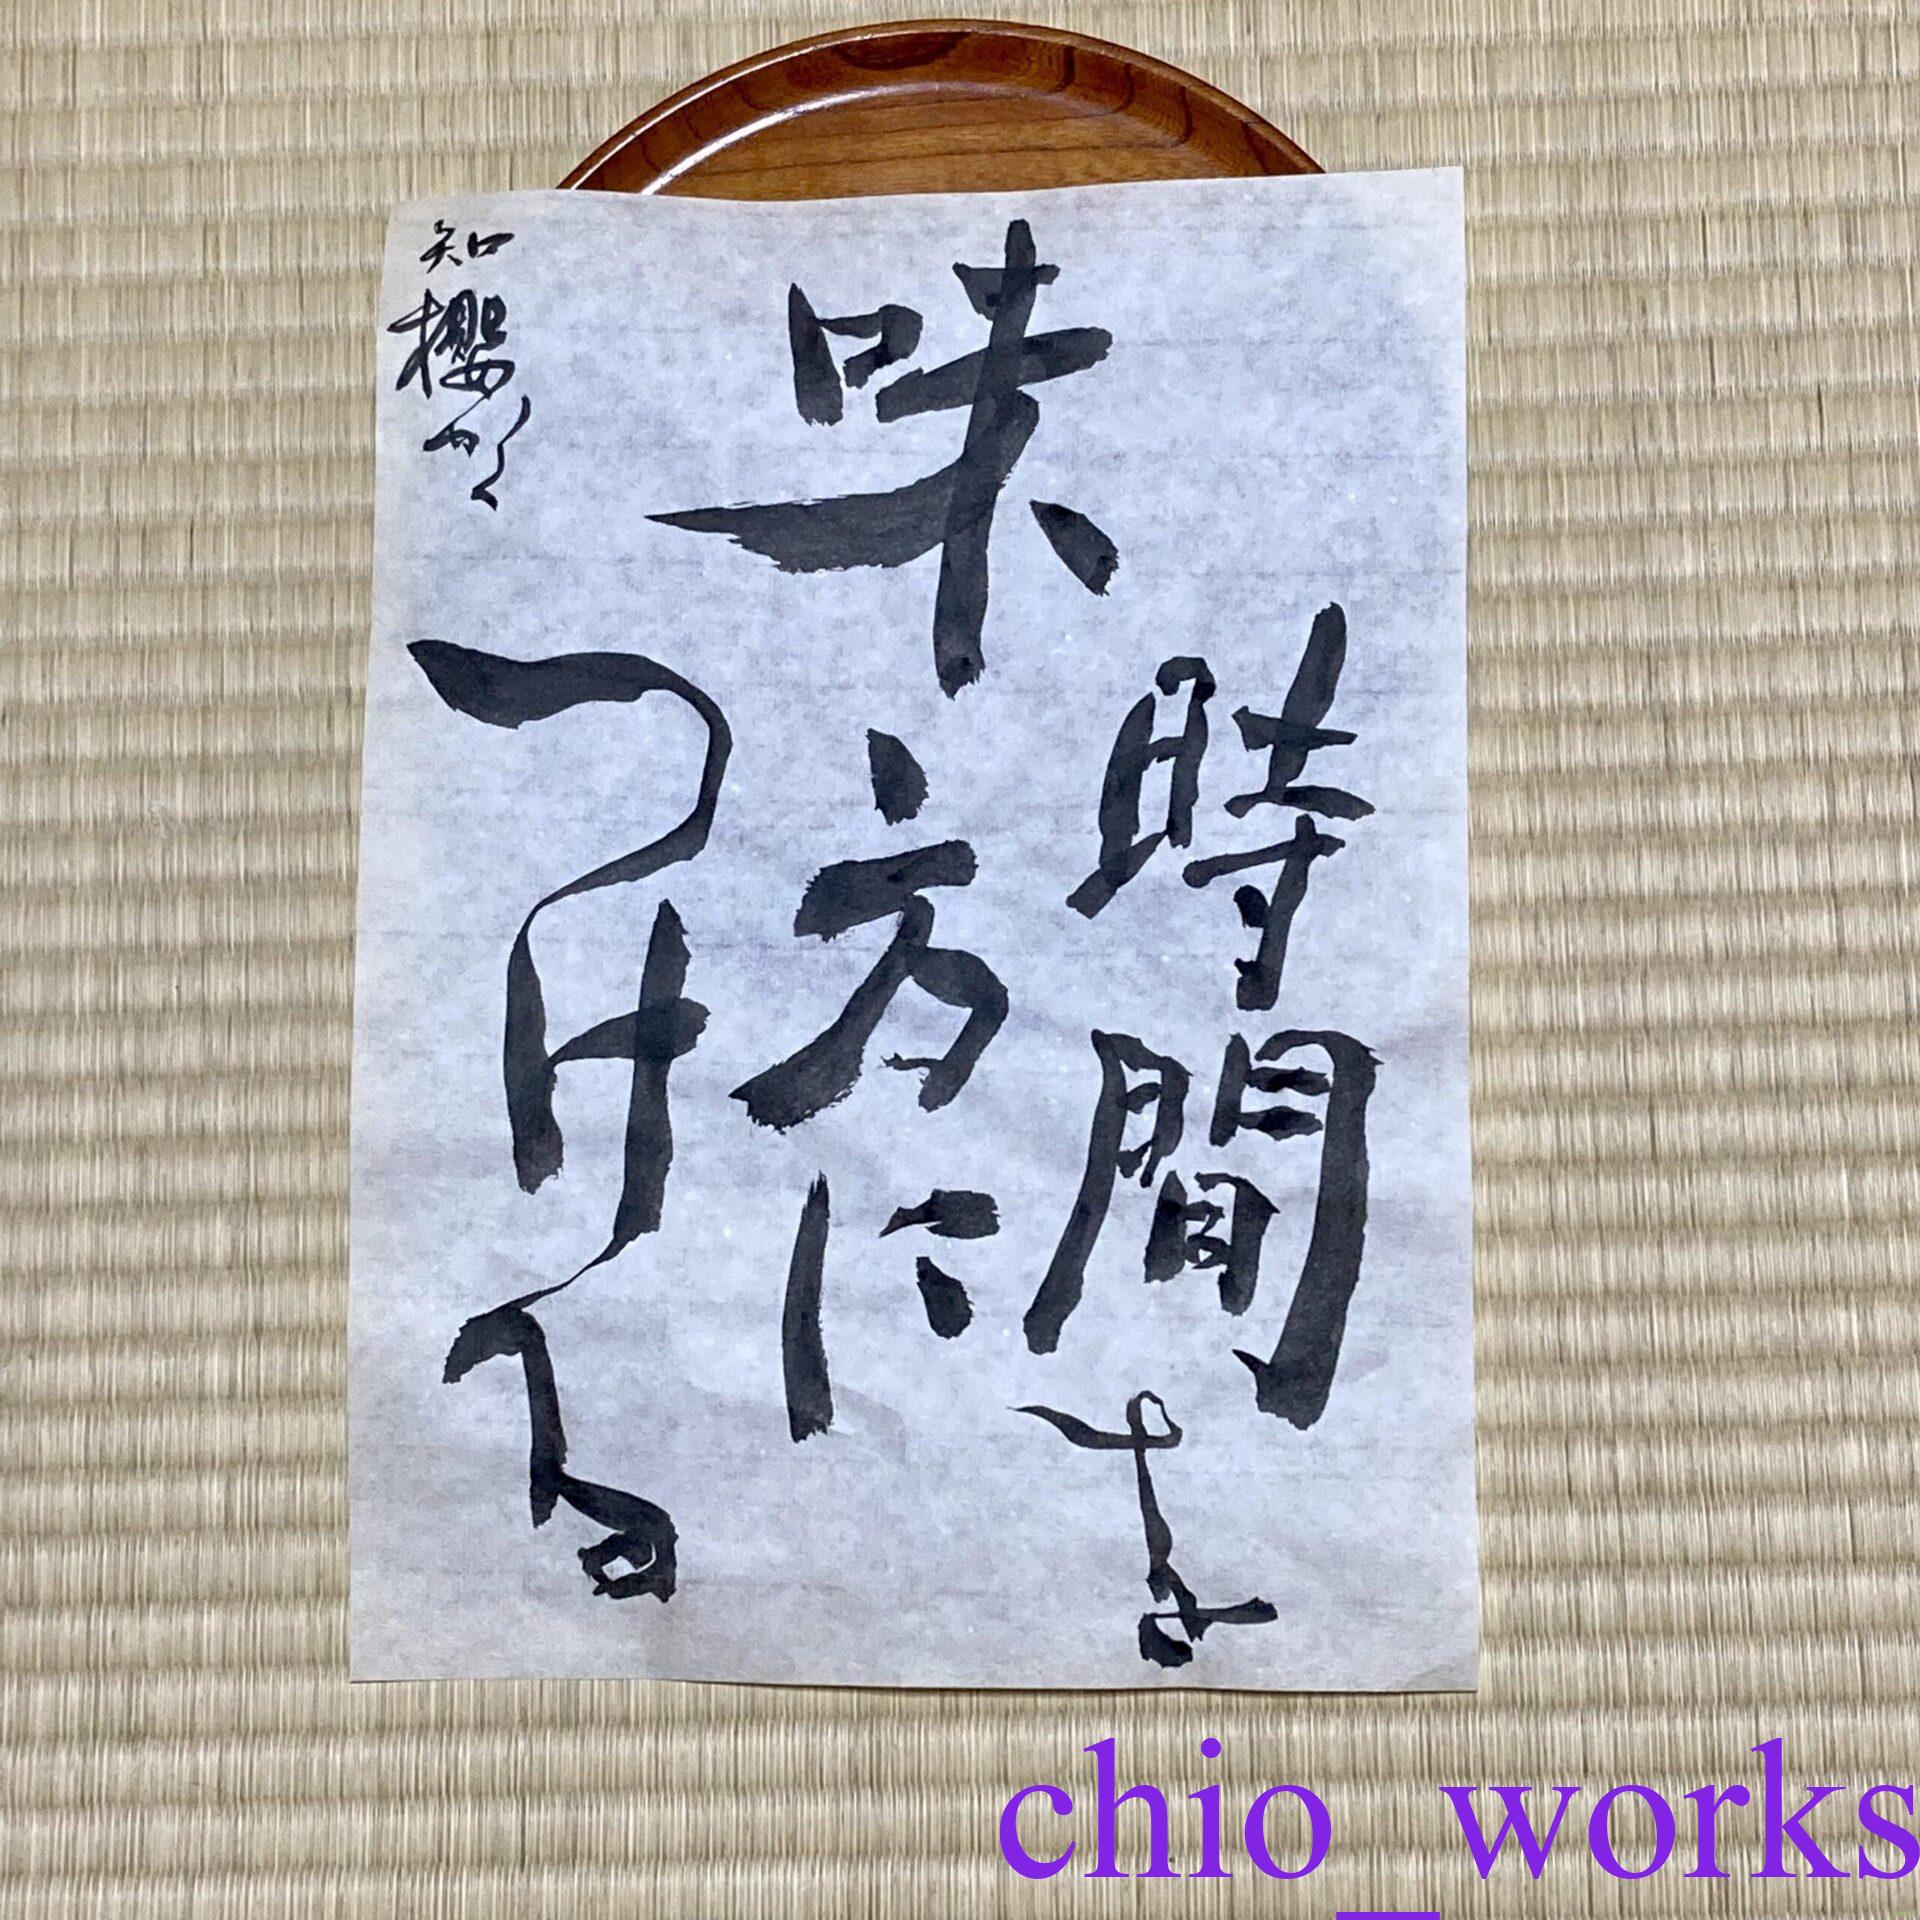 時間を
味方に
つける
知櫻
chio_works